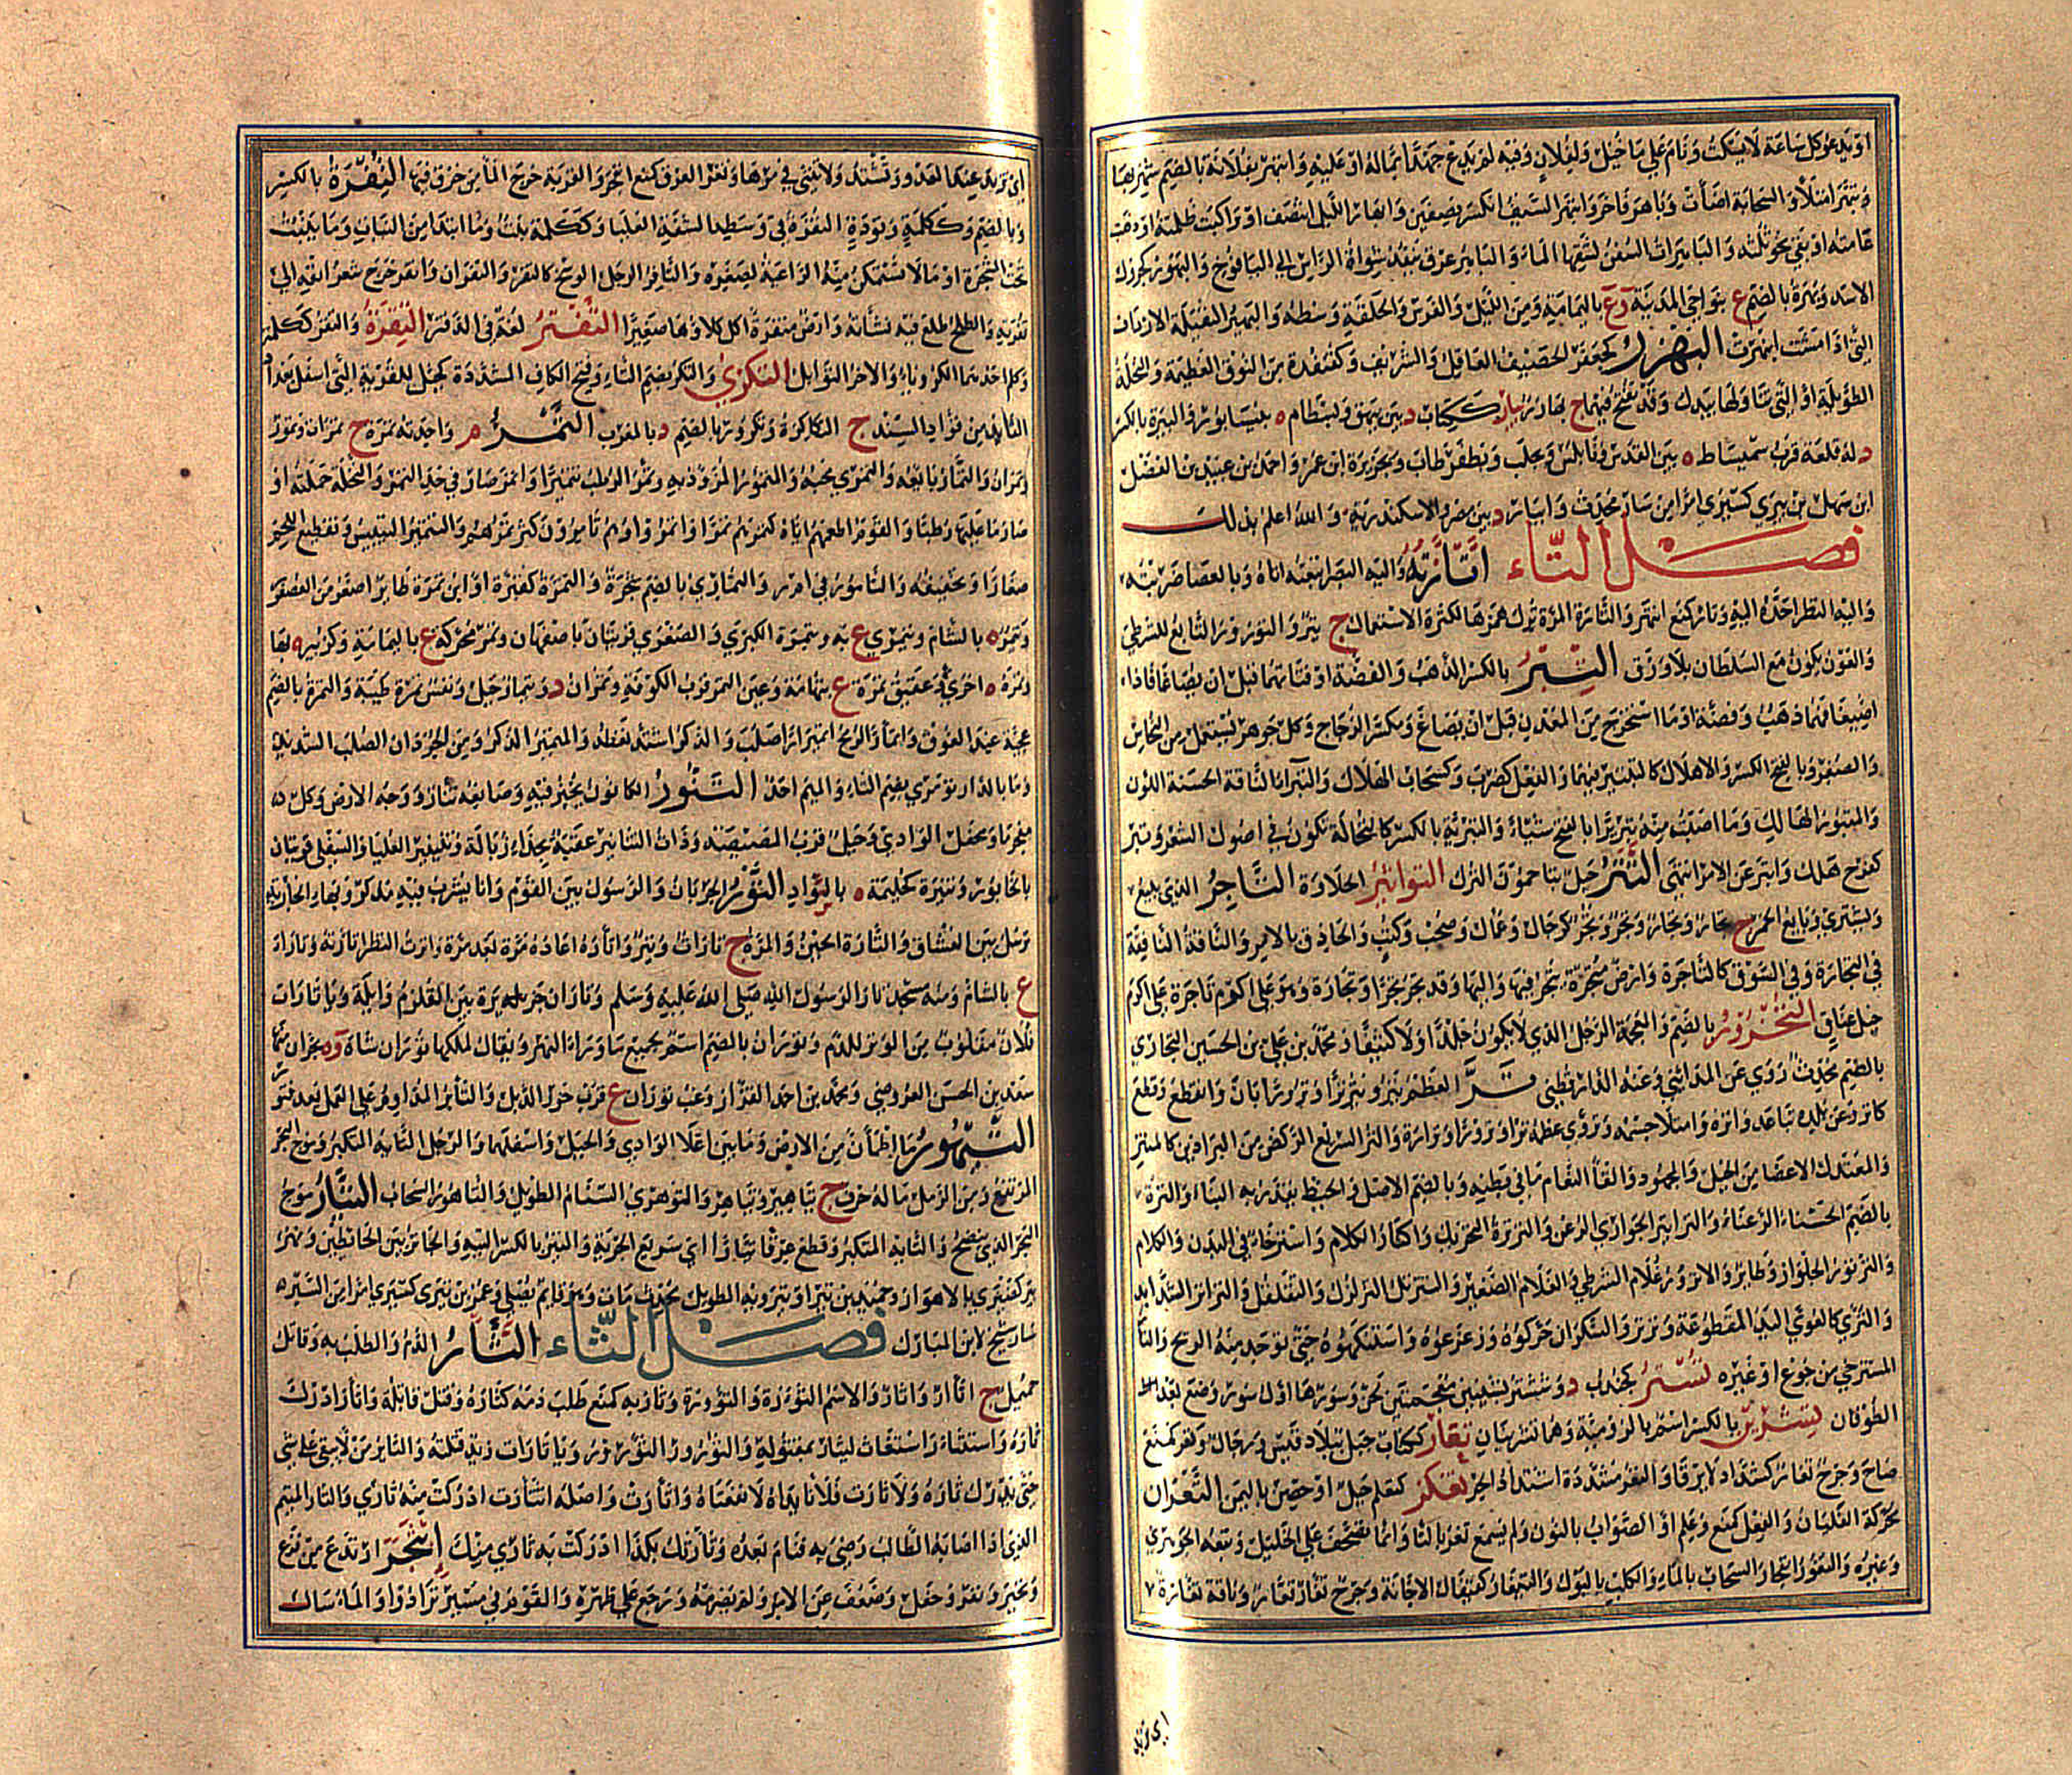 او يدعو كل ساعة لا يسكت ونام على ما خيل ولفلان وفيه لم يدع جهدا بماله او عليه وانبهر بفلانة بالضم شهر بها
وتبهر امتلأ والسحابة اضأت وباهر فاخر وانبهر السيف انكسر بنصفين وابهار الليل انتصف او تراكبت ظلمته او ذهبت
عامته او بقي نحو ثلثه والباهرات السفن لشقها الماء والباهر عرق ينفذ شواة الراس الى اليافوخ والبهور كجرول
الاسد وبهرة بالضم ع بنواحي المدينة وع باليمامة ومن الليل والفرس والحلقة وسطه والبهير الثقيلة الارداف
التي اذا مشت انبهرت البهزر كجعفر الحصيف العاقل والشريف وكقنفذة من النوق العظيمة والنخلة
الطويلة او التي تناولها بيدك وقد تفتح فيهما ج بهازر بيار ككتاب د بين بيهق وبسطام ه بنيسابور والبيرة بالكسر
د له قلعة قرب سميساط ه بين القدس ونابلس وبحلب وبكفرطاب وبجزيرة ابن عمر واحمد بن عبيد بن الفضل
ابن سهل بن بيري كسيري امرا من سار محدث وابيار د بين مصر والاسكندرية والله اعلم بذلك
فصل التاء اتأرته واليه البصر اتبعته اياه وبالعصا ضربته
واليه النظر احده اليه وتأر كمنع انتهر والتارة المرة ترك همزها لكثرة الاستعمال ج تئر والتؤرور التابع للشرطي
والعون يكون مع السلطان بلا رزق التبر بالكسر الذهب والفضة او فتاتهما قبل ان يصاغا فاذا
اصيغا فهما ذهب وفضة او ما استخرج من المعدن قبل ان يصاغ ومكسر الزجاج وكل جوهر يستعمل من النحاس
والصفر وبالفتح الكسر والاهلاك كالتتبير فيهما والفعل كضرب وكسحاب الهلاك والتبراء الناقة الحسنة اللون
والمتبور الهالك وما اصبت منه تبريرا بالفتح شيأ والتبرية بالكسر كالنخالة تكون في اصول الشعر وتبر
كفرح هلك واتبر عن الامر انتهى التتر جيل يتاخمون الترك التواثير الجلاوزة التاجر الذي يبيع
ويشتري وبايع الخمر ج تجار وتجار وتجر وتجر كرجال وعمال وصحب وكتب والحاذق بالامر والناقة النافقة
في التجارة وفي السوق كالتاجرة وارض متجرة يتجر فيها واليها وقد تجر تجرا وتجارة وهو على اكرم تاجرة على اكرم
خيل عتاق التخرور بالضم والمعجمة الرجل الذي لا يكون جلدا ولا كثيفا ومحمد بن علي بن الحسين التخاري
بالضم محدث روى عن المدائني وعنه الدارقطني تر العظم يتر ويتر ترا وترورا بان وانقطع وقطع
كاتر وعن بلده تباعد واتره وامتلا جسمه وتروى عظمه ترا وترورا وترارة والتر السريع الركض من البراذين كالمنتر
والمعتدل الاعضا من الخيل والمجهود والقاء النعام ما في بطنه وبالضم الاصل والخيط يقدر به البناء والترة
بالضم الحسناء الرعناء والتراتر الجواري الرعن والترترة التحريك واكثار الكلام واسترخاء في البدن والكلام
والترتور الجلواز وطائر والاترور غلام الشرطي والغلام الصغير والتترتر التزلزل والتقلقل والتراتر الشدايد
والترى كالعوى اليد المقطوعة وترتروا السكران حركوه وزعزعوه واستنكهوه حتى توجد منه الريح والتار
المسترخي من جوع او غيره تستر كجندب د وششتر بشينين معجمتين لحن وسورها اول سور وضع بعد
الطوفان تشرين بالكسر اسم بالرومية وهما تشرينان تعار ككتاب جبل ببلاد قيس وتعر كمنع
صاح وجرح تعار كشداد لا يرقا والتعر مشددة اشتداد الحر تعكر كتعلم جبل او حصن باليمن التغران
محركة الغليان والفعل كمنع وعلم او الصواب بالنون ولم يسمع تغر بالتا وانما تصحف على الخليل وتبعه الجوهري
وغيره والتغور انفجار السحاب بالماء والكلب بالبول والتيغار كقيفال الاجانة وجرح تغار تعار وناقة تغارة
اي تزبد
اي تزيد عند العدو وتشتد ولا تنثني في مرها وتغر العرق كمنع انفجر والقربة خرج الماء من خرق فيها التفرة بالكسر
وبالضم وككلمة وتؤدة النقرة في وسط الشفة العليا وككلمة نبت وما ابتدا من النبات وما ينبت
تحت الشجرة او ما لا تستمكن منه الراعية لصغره والتافر الرجل الوسخ كالتفر والتفران واتفر خرج شعر انفه الى
تفرته والطلح طلع فيه نشأته وارض متفرة اكل كلاوها صغيرا التفتر لغة في الدفتر التقرة والتقر ككلمة
وكلم احدهما الكرويا والاخر التوابل التكري والتكر بضم التاء وفتح الكاف المشددة
القائد من قواد السند ج التكاكرة وتكرور بالضم د بالمغرب التمر م واحدته تمرة ج تمرات وتمور
وتمران والتمار بائعه والتمري محبه والمتمور المزود به وتمر الرطب تتميرا واتمر صار في حد التمر والنخلة حملته او
صار ما عليها رطبا والقوم اطعمهم اياه كتمرهم تمرا واتمروا وهم تامرون كثر تمرهم والتتمير التيبيس وتقطيع اللحم
صغارا وتجفيفه والتامور في ا م ر والتماري بالضم شجرة والتمرة كقبرة او ابن تمرة طائر اصغر من العصفور
وتيمر ه بالشام وتيمري ع به وتيمرة الكبرى والصغرى قريتان باصفهان وتمر محركة ع باليمامة وكزبير ه بها
وتمرة ه اخرى وعقيق تمرة ع بتهامة وعين التمر قرب الكوفة وتمران د وتيمار جبل ونفس تمرة طيبة والتمرة بالضم
عجمة عند الفوق واتمأر الرمح اتمئرارا صلب والذكر اشتد نعظه والمتمئر الذكر ومن الجردان الصلب الشديد
وما بالدار تومري بضم التاء والميم احد التنور الكانون يخبز فيه وصانعه تنار ووجه الارض وكل
مفجر ماء ومحفل الوادي وجبل قرب المصيصة وذات التنانير عقبة بحذاء زبالة وتنينير العليا والسفلى قريتان
بالخابور وتنيرة كجهينة ه بالسواد التور الجريان والرسول بين القوم واناء يشرب فيه مذكر وبهاء الجارية
ترسل بين العشاق والتارة الحين والمرة ج تارات وتير واتاره اعاده مرة بعد مرة واترت النظر اتأرته وتاراء
ع بالشام ومنه مسجد تاراء لرسول الله صلى الله عليه وسلم وتاران جزيرة بين القلزم وايلة ويا تارات
فلان مقلوب من الوتر للدم وتوران بالضم اسم لجميع ما وراء النهر ويقال لملكها توران شاه و ه بحران منها
سعد بن الحسن العروضي ومحمد بن احمد القزاز وعب توران ع قرب خور الديبل والتائر المداوم على العمل بعد فتور
التيهور ما اطمأن من الارض وما بين اعلا الوادي والجبل واسفلهما والرجل التايه المتكبر وموج البحر
المرتفع ومن الرمل ما له جرف ج تياهير وتياهر والتوهري السنام الطويل والتاهور السحاب التيار موج
البحر الذي ينضح والتايه المتكبر وقطع عرقا تيارا اي سريع الجرية والتير بالكسر التيه والحاجز بين الحائطين ونهر
تيرى كضيزى بالاهواز وحميد بن تير او تيرويه الطويل محدث مات وهو قايم يصلي وعمر بن تيرى كسيري امرا من السير
سار شيخ لابن المبارك فصل الثاء الثأر الدم والطلب به وقاتل
حميمك ج اثار واثار والاسم الثؤرة والثؤورة وثاربه كمنع طلب دمه كثاره وقتل قاتله واثأر ادرك
ثاره واستثار استغاث ليثار بمقتوله والثؤرور التؤرور ويا ثارات زيد قتلته والثائر من لا يبقي على شي
حتى يدرك ثاره ولا ثارت فلانا يداه لا نفعتاه واثأرت واصله اثتأرت ادركت منه ثاري والثار المنيم
الذي اذا اصابه الطالب رضي به فنام بعده وثأرتك بكذا ادركت به ثاري منك اثبجر ارتدع من فزع
وتحير ونفر وجفل وضعف عن الامر ولم يصرمه ورجع على ظهره والقوم في مسير ترادوا والماء سال